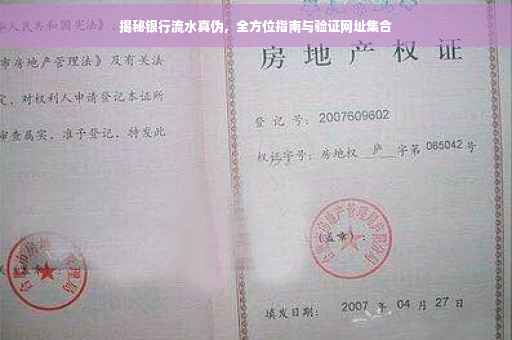 揭秘银行流水真伪，全方位指南与验证网址集合
华人民共和国宪法》及
市房地产管理法》及有关
定，对权利人申请登记本证所
审查属实，准予登记，特发此
房地产权证
登记号：2007609602
权证字号：房地权 庐 字第 065042 号
(盖章)：
填发日期：2007 年 04 月 27 日